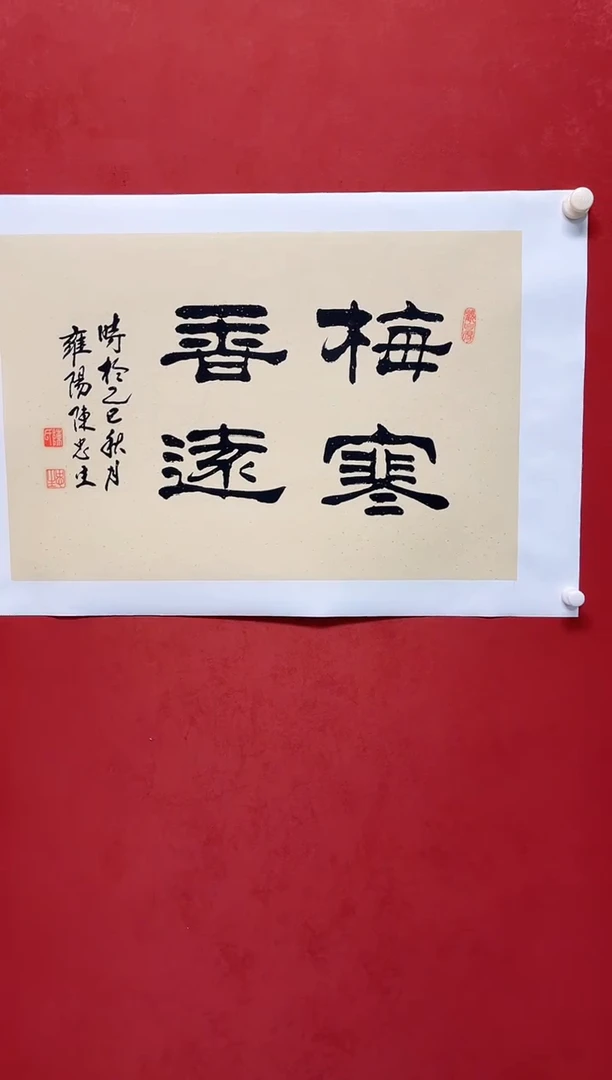 梅寒
善遠
時於乙巳秋月
雍陽陳忠生